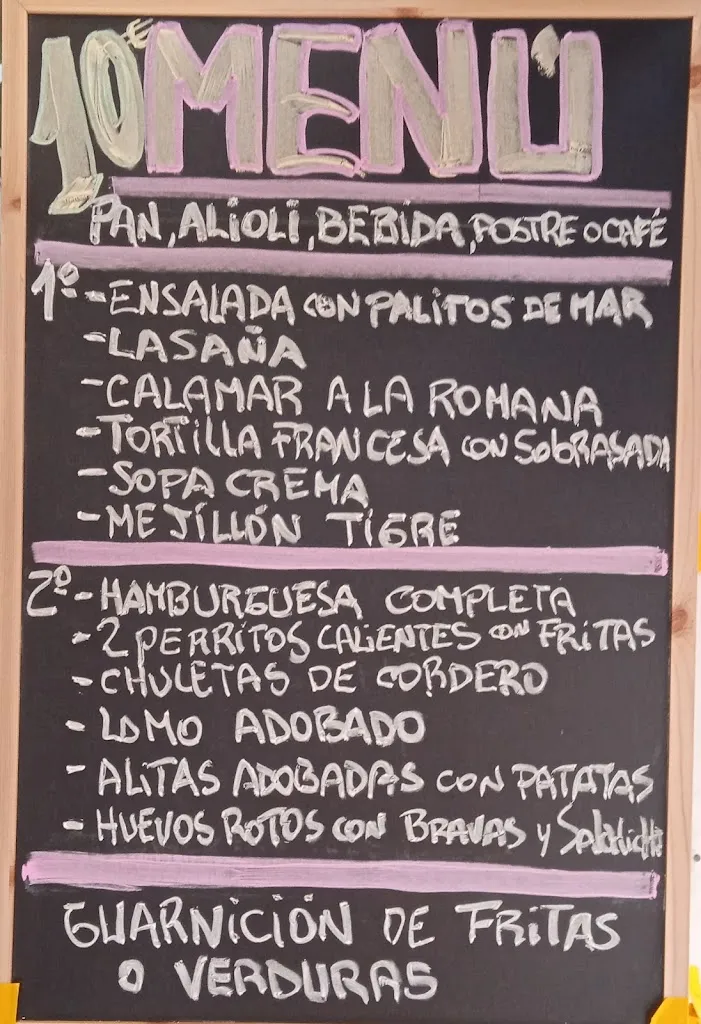 10€ MENÚ
PAN, ALIOLI, BEBIDA, POSTRE O CAFÉ
1º - ENSALADA CON PALITOS DE MAR
- LASAÑA
- CALAMAR A LA ROMANA
- TORTILLA FRANCESA CON SOBRASADA
- SOPA CREMA
- MEJILLÓN TIGRE
2º - HAMBURGUESA COMPLETA
- 2 PERRITOS CALIENTES CON FRITAS
- CHULETAS DE CORDERO
- LOMO ADOBADO
- ALITAS ADOBADAS CON PATATAS
- HUEVOS ROTOS CON BRAVAS Y
GUARNICIÓN DE FRITAS
O VERDURAS